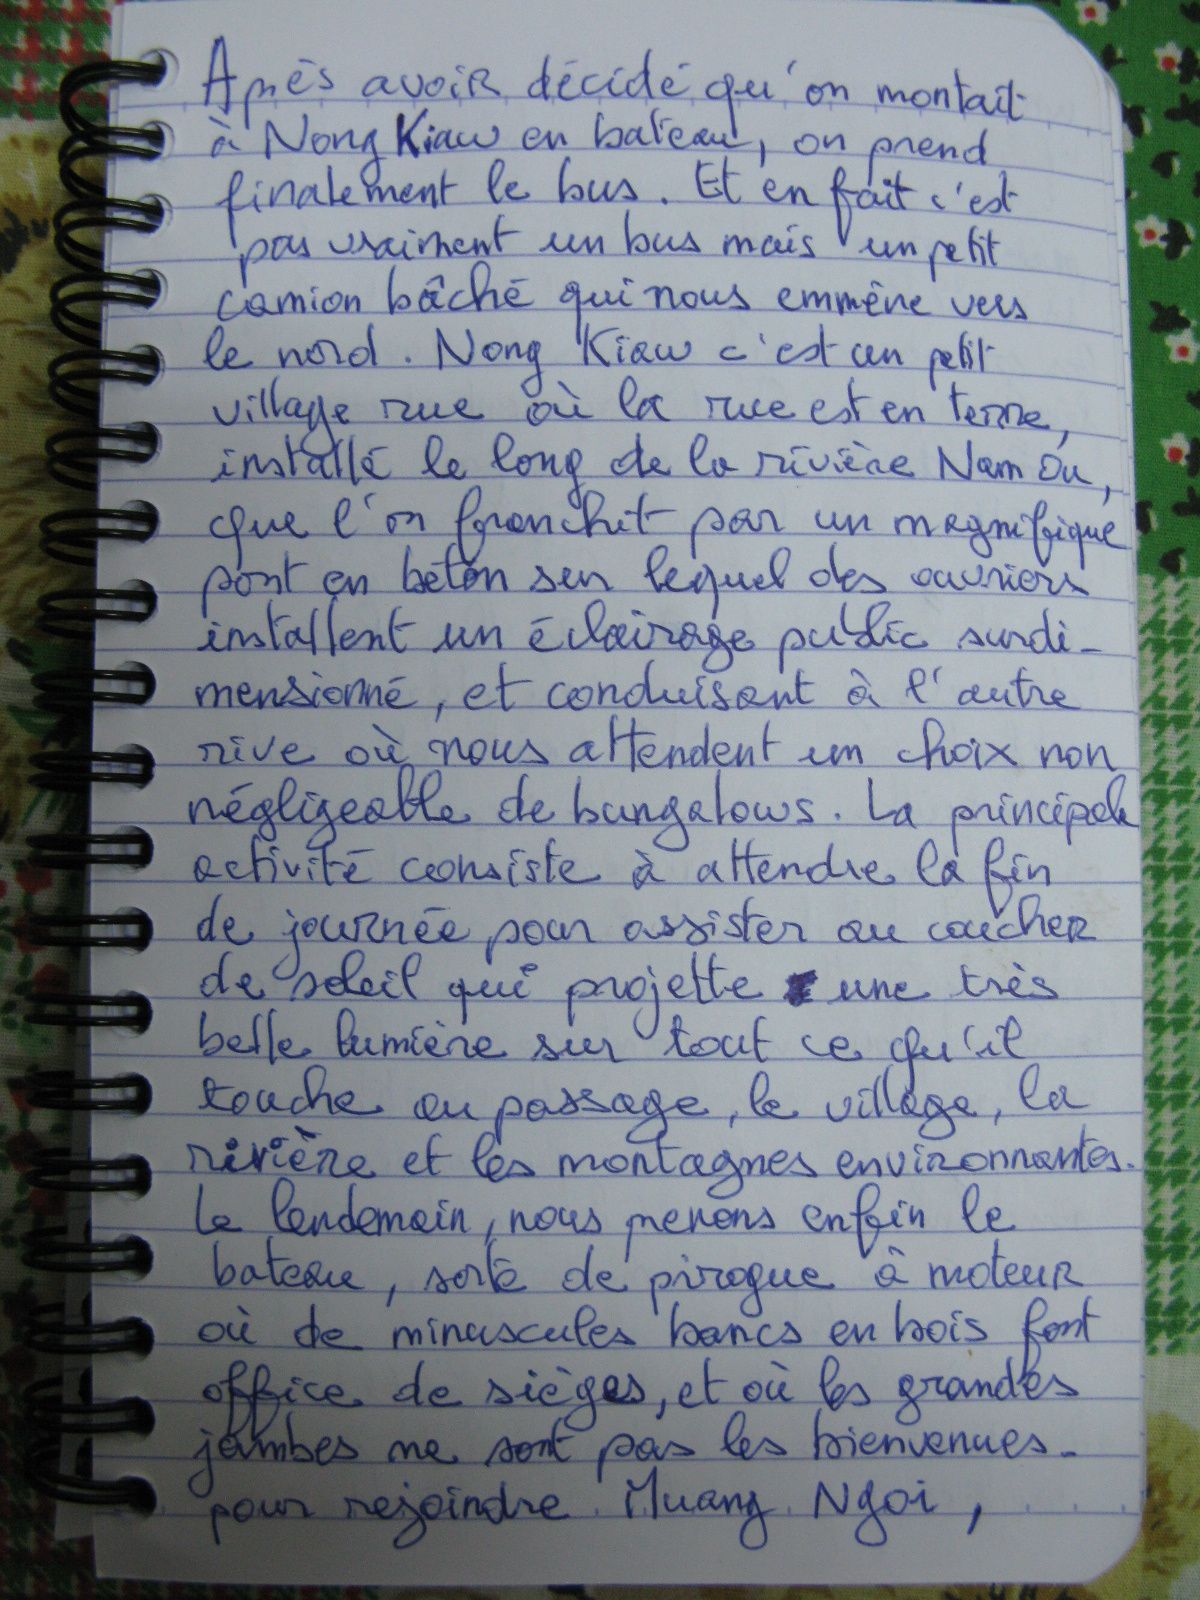 Après avoir décidé qu'on montait
à Nong Kiaw en bateau, on prend
finalement le bus. Et en fait c'est
pas vraiment un bus mais un petit
camion bâché qui nous emmène vers
le nord. Nong Kiaw c'est un petit
village rue où la rue est en terre,
installé le long de la rivière Nam Ou,
que l'on franchit par un magnifique
pont en béton sur lequel des ouvriers
installent un éclairage public surdi-
mensionné, et conduisant à l'autre
rive où nous attendent un choix non
négligeable de bungalows. La principale
activité consiste à attendre la fin
de journée pour assister au coucher
de soleil qui projette une très
belle lumière sur tout ce qu'il
touche au passage, le village, la
rivière et les montagnes environnantes.
Le lendemain, nous prenons enfin le
bateau, sorte de pirogue à moteur
où de minuscules bancs en bois font
office de sièges, et où les grandes
jambes ne sont pas les bienvenues.
pour rejoindre Muang Ngoi,